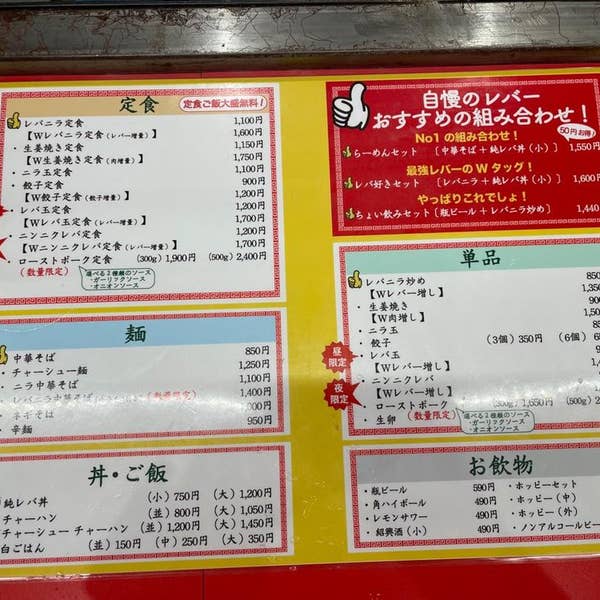 定食
定食ご飯大盛無料！
レバニラ定食 1,100円
【Wレバニラ定食（レバー増量）】 1,600円
・生姜焼き定食 1,150円
【W生姜焼き定食（肉増量）】 1,750円
・ニラ玉定食 1,100円
・餃子定食 900円
【W餃子定食（餃子増量）】 1,200円
・レバ玉定食 1,200円
【Wレバ玉定食（レバー増量）】 1,700円
ニンニクレバ定食 1,200円
【Wニンニクレバ定食（レバー増量）】 1,700円
・ローストポーク定食 （300g）1,900円 （500g）2,400円
（数量限定）
選べる2種類のソース
・ガーリックソース
・オニオンソース
麺
中華そば 850円
・チャーシュー麺 1,250円
・ニラ中華そば 1,100円
レバニラ中華そば 1,400円
・ネギそば
・辛麺 950円
丼・ご飯
純レバ丼 （小）750円 （大）1,200円
チャーハン （並）800円 （大）1,050円
チャーシューチャーハン （並）1,200円 （大）1,450円
白ごはん （並）150円 （中）250円 （大）350円
自慢のレバー
おすすめの組み合わせ！
No1の組み合わせ！
50円お得！
らーめんセット［中華そば＋純レバ丼（小）］ 1,550円
最強レバーのWタッグ！
レバ好きセット［レバニラ＋純レバ丼（小）］ 1,600円
やっぱりこれでしょ！
ちょい飲みセット［瓶ビール＋レバニラ炒め］ 1,440
単品
レバニラ炒め 850
【Wレバー増し】 1,350
・生姜焼き 900
【W肉増し】
・ニラ玉
・餃子 （3個）350円 （6個）
昼限定
・レバ玉
【Wレバー増し】
夜限定
・ニンニクレバ
【Wレバー増し】
・ローストポーク 1,650円
・生卵 （数量限定）
選べる2種類のソース
・ガーリックソース
・オニオンソース
お飲物
・瓶ビール 590円
・角ハイボール 490円
・レモンサワー 490円
・紹興酒（小） 490円
・ホッピーセット
・ホッピー（中）
・ホッピー（外）
・ノンアルコールビー